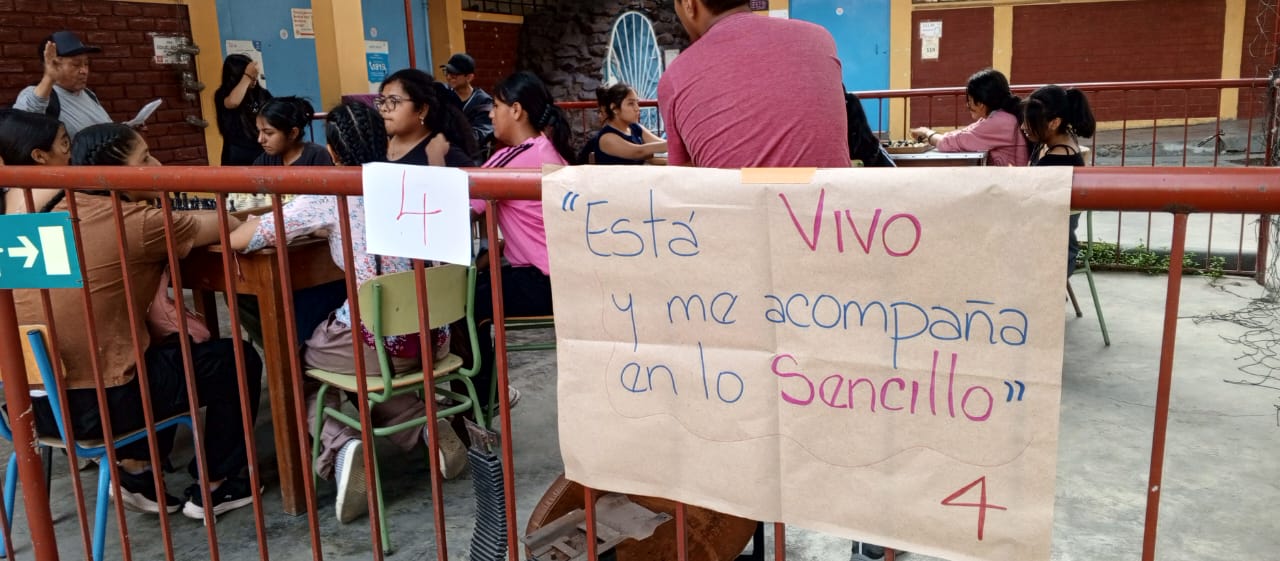 4
"Está VIVO
y me acompaña
en lo Sencillo"
4